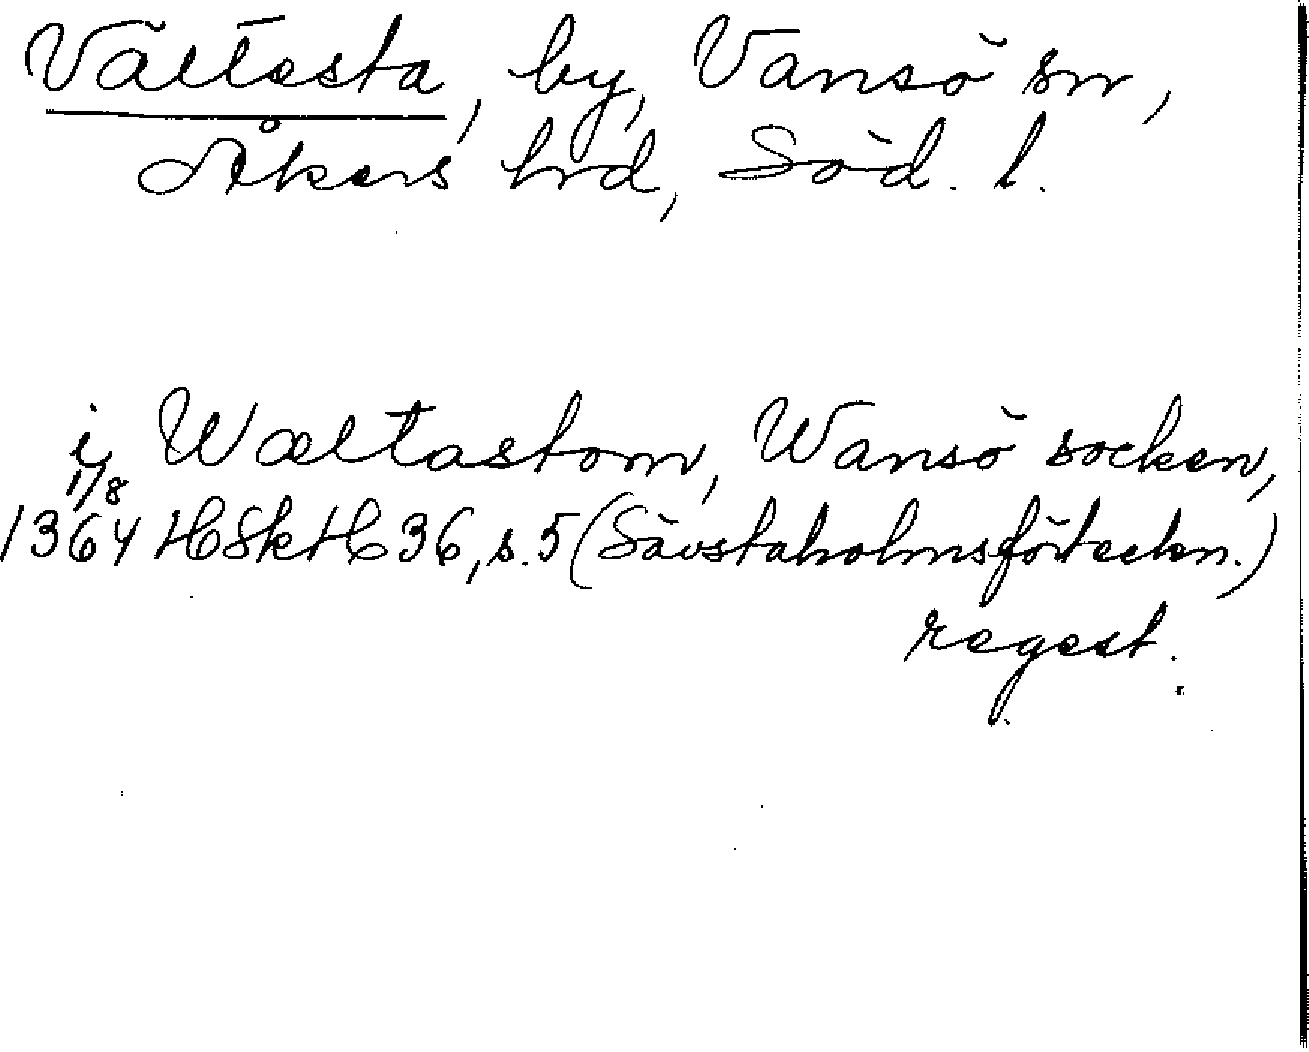 Vältesta, by, Vansö sn,
Åkers hrd, Söd. l.
i Wæltastom, Wansö socken,
1/8
1364 HSkH 36, s. 5 (Sävstaholmsförteckn.)
regest.